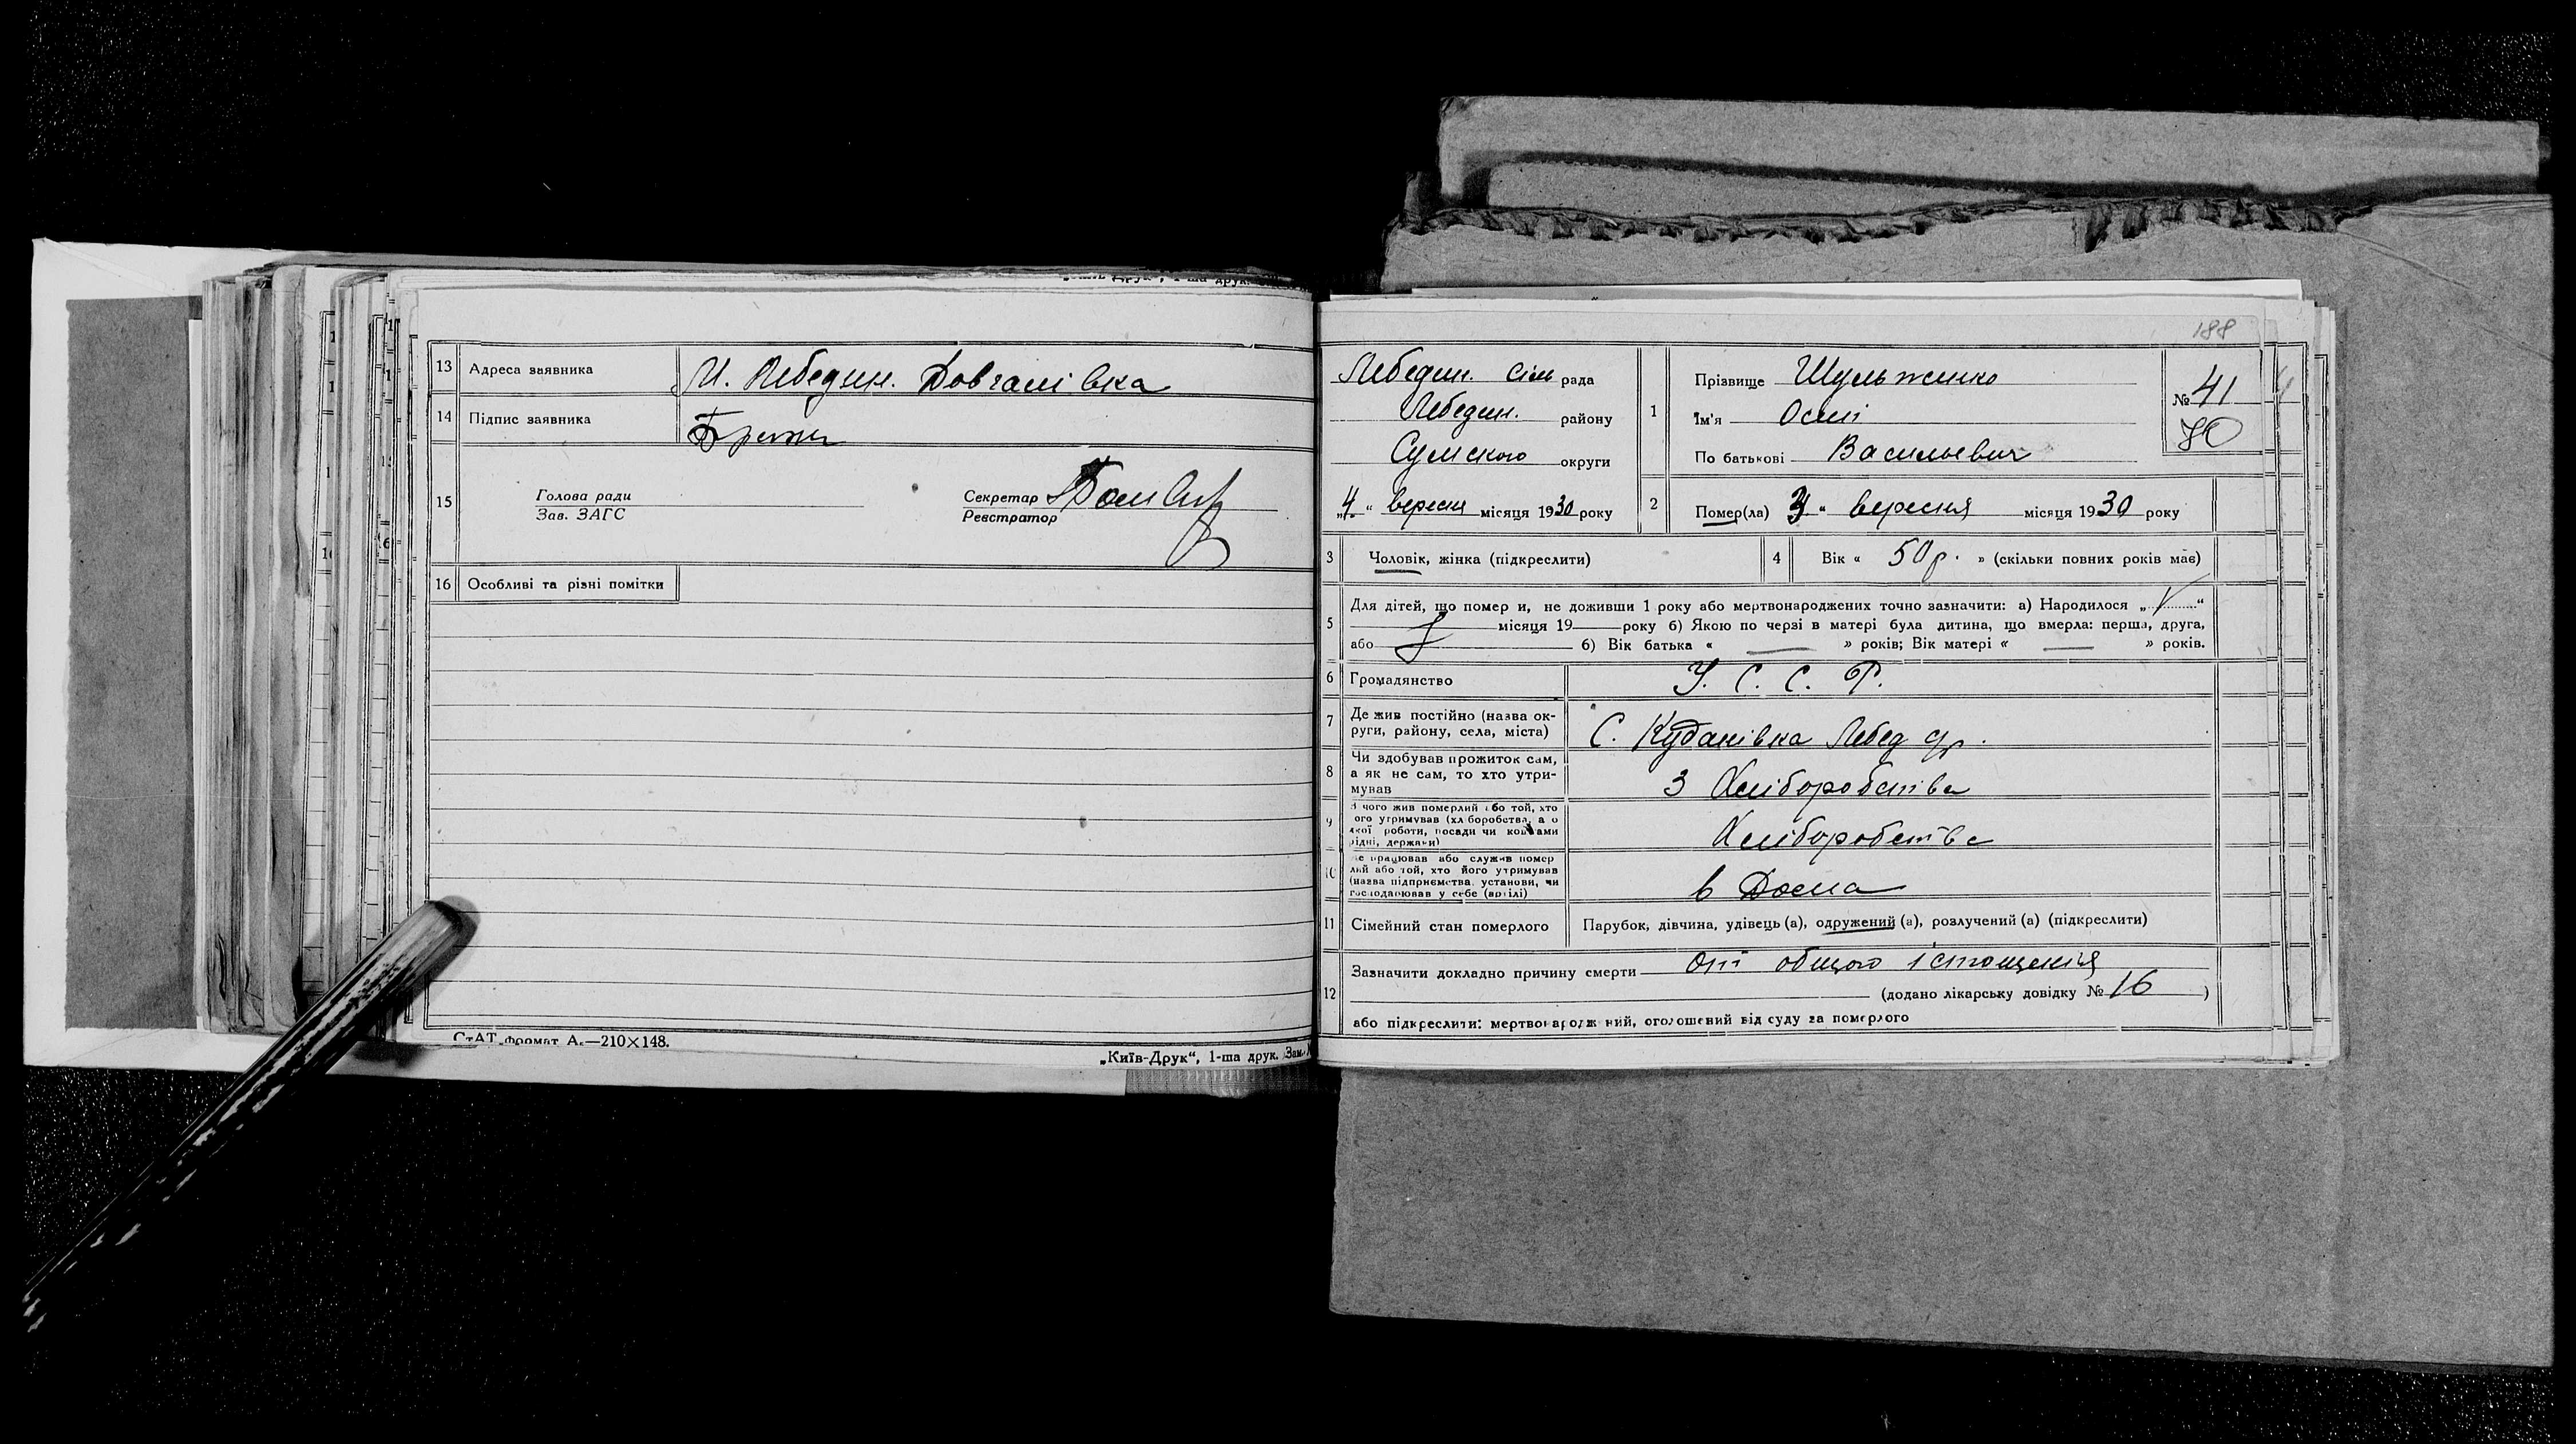 13 Адреса заявника М. Лебедин. Довгалівка
14 Підпис заявника
15 Голова ради
Зав. ЗАГС
Секретар
Реєстратор
16 Особливі та різні помітки
СтАТ формат А₅—210×148.
„Київ-Друк“, 1-ша друк. Зам.
188
Лебедин. Сіль рада
Лебедин. району
Сумского округи
„4“ вересня місяця 1930 року
1 Прізвище Шульженко
Ім'я Осип
По батькові Васильевич
№ 41
70
2 Помер(ла) 3 “ вересня місяця 1930 року
3 Чоловік, жінка (підкреслити)
4 Вік « 50 р. » (скільки повних років має)
5 Для дітей, що померли, не доживши 1 року або мертвонароджених точно зазначити: а) Народилося „ “
місяця 19 року б) Якою по черзі в матері була дитина, що вмерла: перша, друга,
або б) Вік батька « — » років; Вік матері « — » років.
6 Громадянство У. С. С. Р.
7 Де жив постійно (назва ок-
руги, району, села, міста) С. Куданівка Лебед др.
8 Чи здобував прожиток сам,
а як не сам, то хто утри-
мував З Хліборобства
9 З чого жив померлий або той, хто
його утримував (хліборобства, а о
якої роботи, посади чи коштами
рідні, держави) Хліборобства
10 Де працював або служив помер
лий або той, хто його утримував
(назва підприємства, установи, чи
господарював у себе (артілі) в Дома
11 Сімейний стан померлого Парубок, дівчина, удівець (а), одружений (а), розлучений (а) (підкреслити)
12 Зазначити докладно причину смерти От общого істощенія
(додано лікарську довідку № 16 )
або підкреслити: мертвонароджений, оголошений від суду за померлого